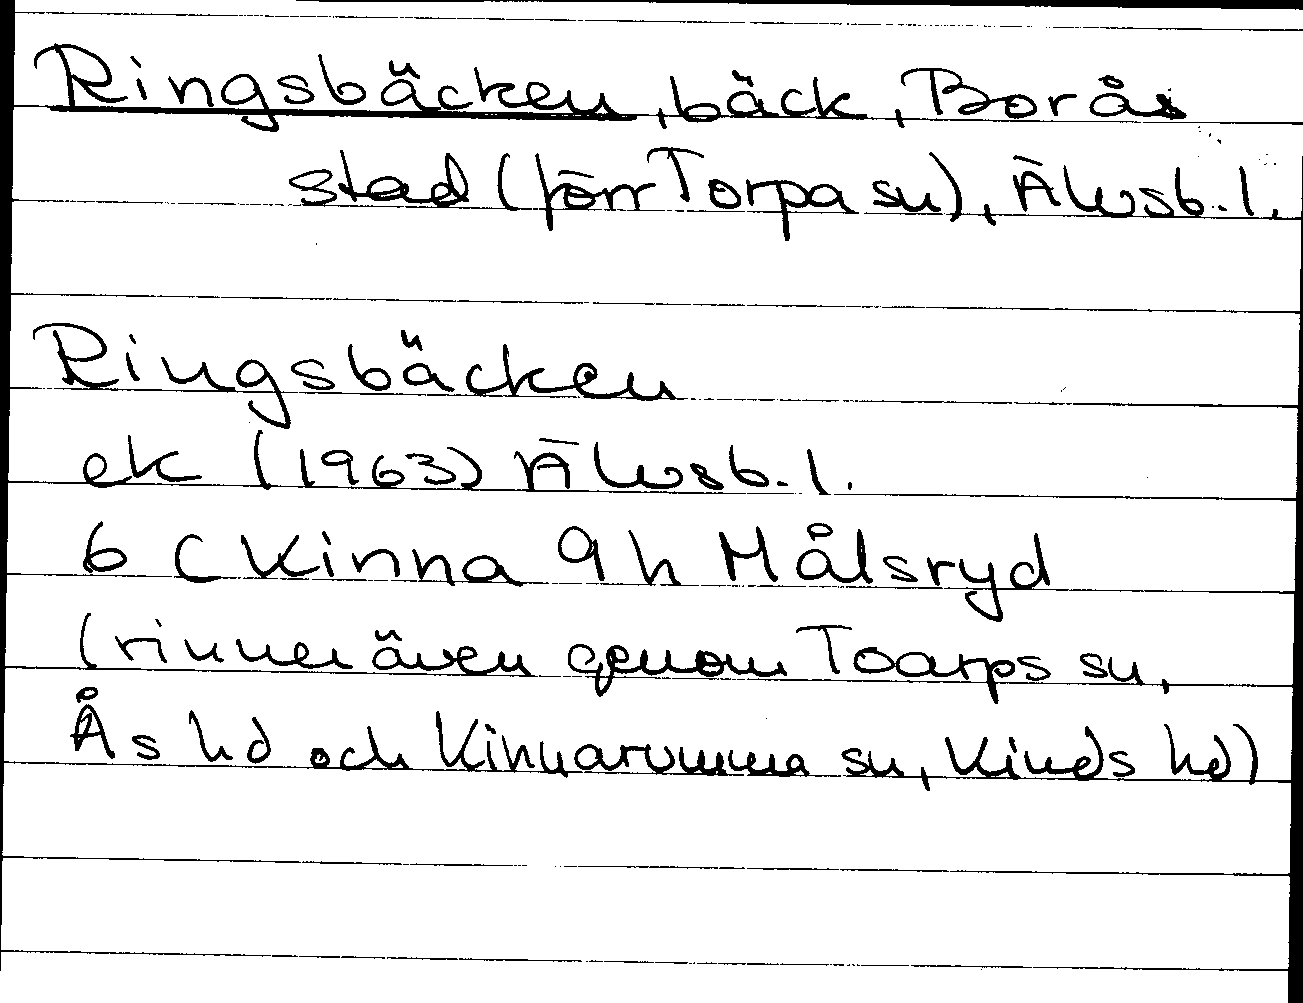 Ringsbäcken, bäck, Borås
stad (förr Torpa sn), Älvsb. l.
Ringsbäcken
ek (1963) Älvsb. l.
6 C Kinna 9 h Målsryd
(rinner även genom Toarps sn,
Ås hd och Kinnarumma sn, Kinds hd)